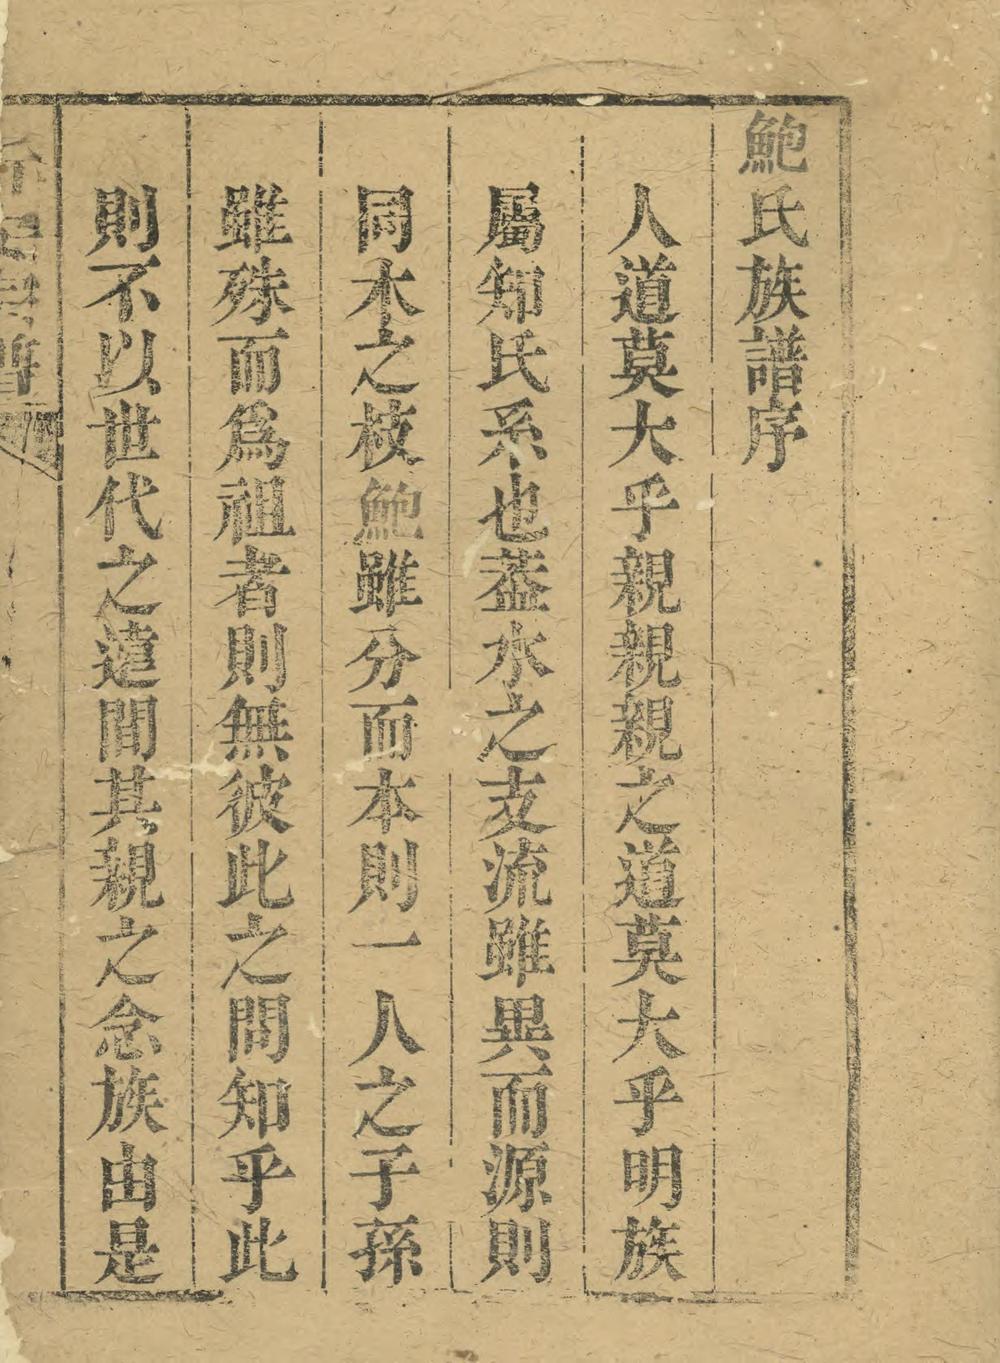 鮑氏族譜序
人道莫大乎親親親之道莫大乎明族
屬知氏系也葢水之支流雖異而源則
同木之枝鮑雖分而本則一人之子孫
雖殊而爲祖者則無彼此之間知乎此
則不以世代之遠間其親之念族由是